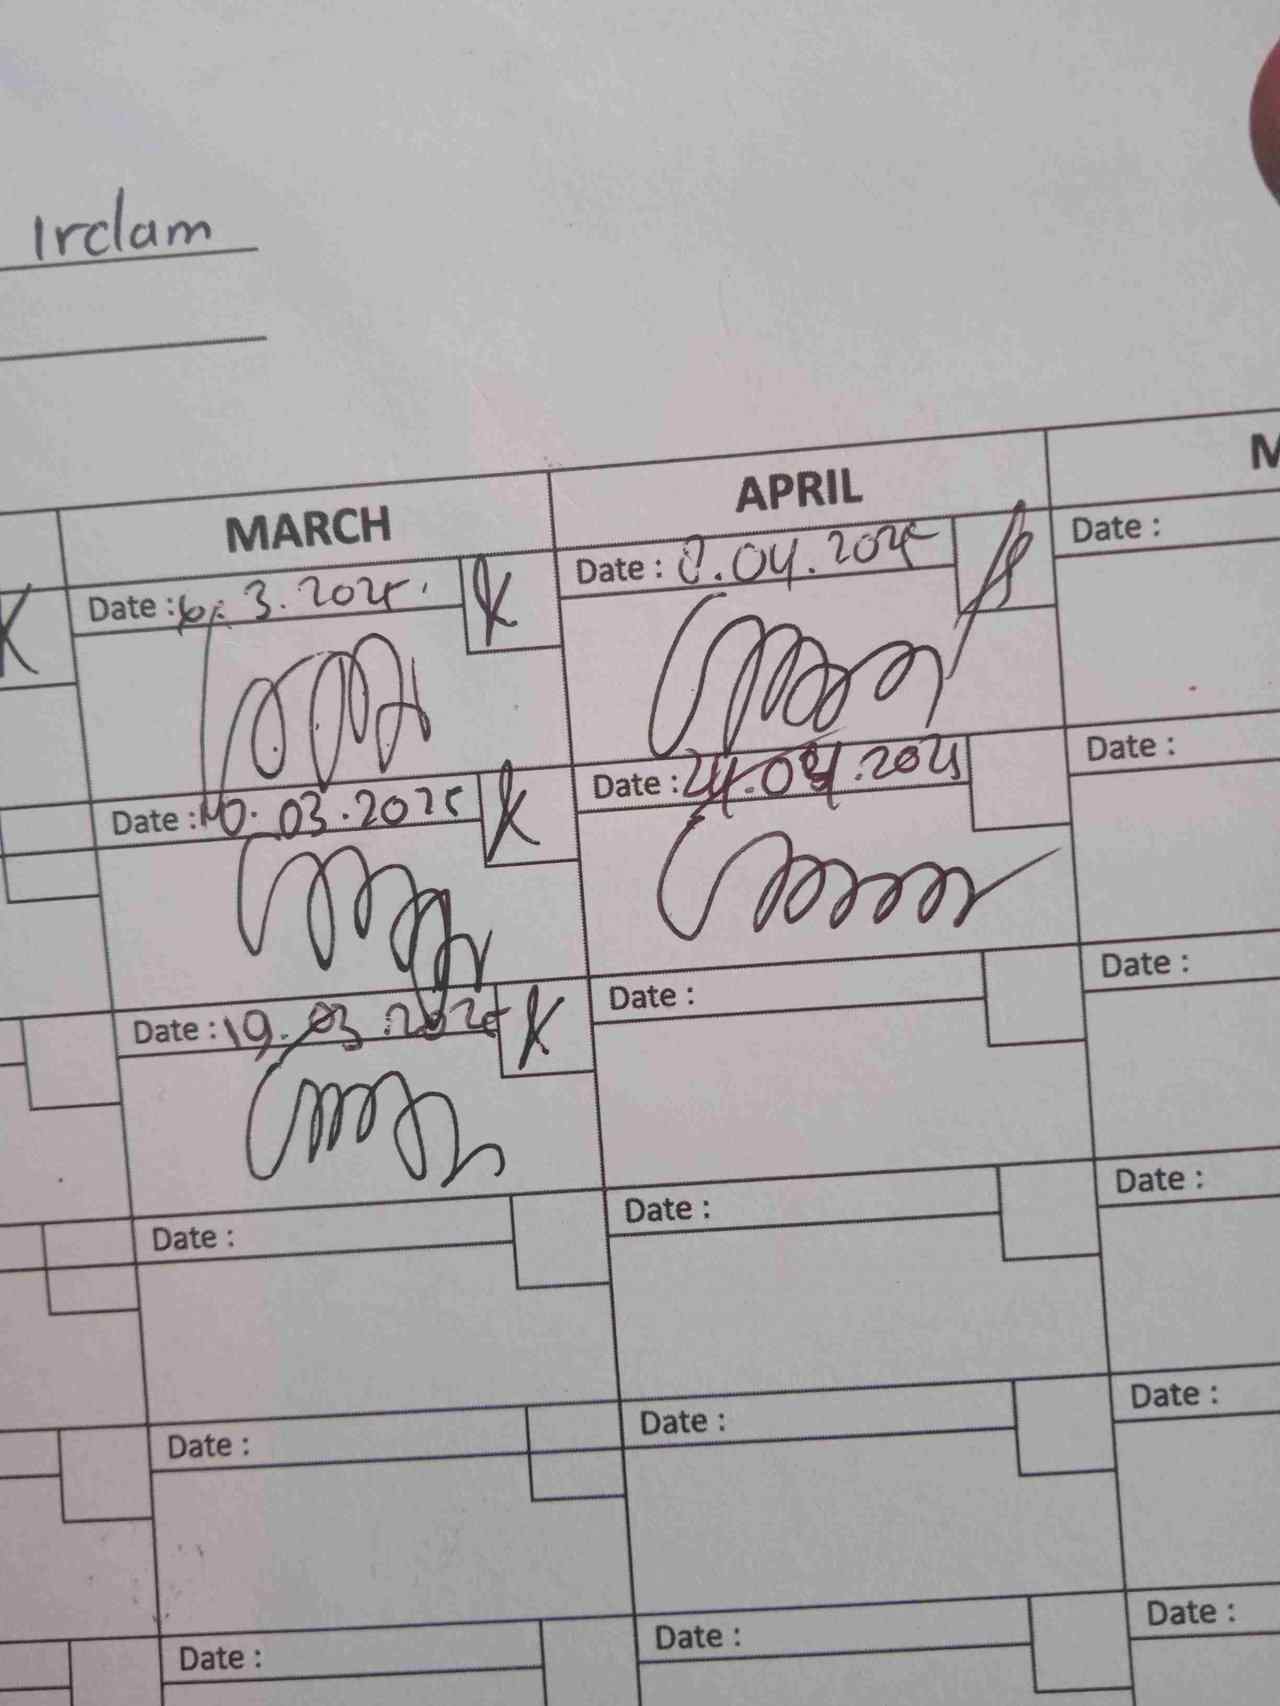 Irdam
MARCH
APRIL
M
K
Date : 6. 3. 2025.
K
Date : 8.04.2025
Date :
Date : 10. 03. 2025
K
Date : 24.04.2025
Date :
Date : 19. 03. 2025
K
Date :
Date :
Date :
Date :
Date :
Date :
Date :
Date :
Date :
Date :
Date :